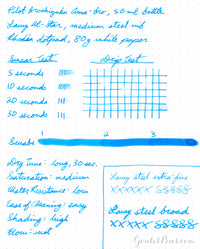 Pilot Iroshizuku Ama-Iro, 50 ml bottle
Lamy Al-Star, medium steel nib
Rhodia dotpad, 80g white paper
Smear Test
Drip Test
5 seconds
10 seconds
20 seconds
30 seconds
Swabs
1
2
3
Dry Time: long, 30 sec.
Saturation: medium
Water Resistance: low
Ease of Cleaning: easy
Shading: high
Flow: wet
Lamy steel extra fine
XXXXXX SSSSSS
Lamy steel broad
XXXXX SSSSSS